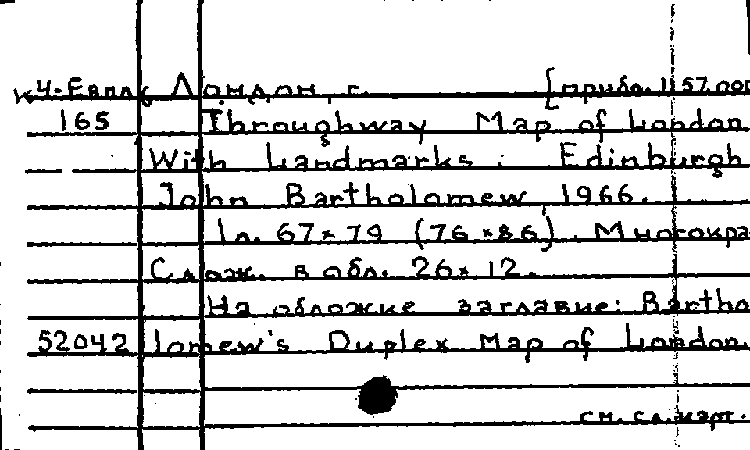 К 4-Европ Лондон, г. [прибл. 1:57.000
165 Throughway Map of London
With Landmarks. Edinburgh
John Bartholomew 1966.
1л. 67×79 (76×86). Многокра
Слож. в обл. 26×12.
На обложке заглавие: Bartho
52042 lomew's Duplex Map of London.
см. сл. карт.